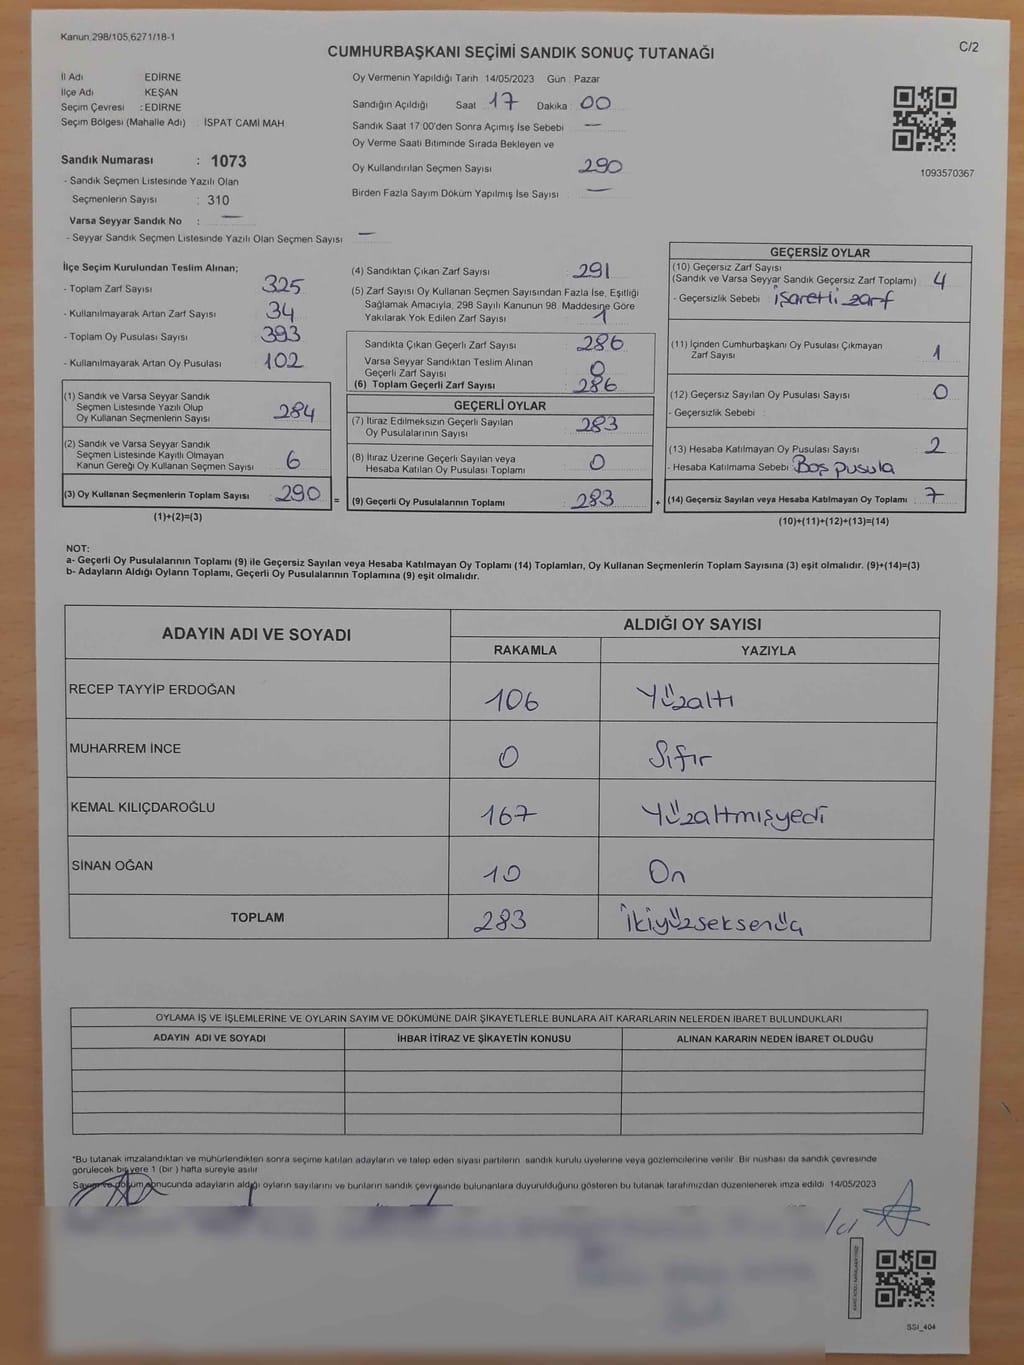 Kanun,298/105,6271/18-1
C/2
CUMHURBAŞKANI SEÇİMİ SANDIK SONUÇ TUTANAĞI
İl Adı EDİRNE
İlçe Adı KEŞAN
Seçim Çevresi : EDİRNE
Seçim Bölgesi (Mahalle Adı) İSPAT CAMİ MAH
Sandık Numarası : 1073
- Sandık Seçmen Listesinde Yazılı Olan
Seçmenlerin Sayısı : 310
Varsa Seyyar Sandık No : —
- Seyyar Sandık Seçmen Listesinde Yazılı Olan Seçmen Sayısı —
Oy Vermenin Yapıldığı Tarih 14/05/2023 Gün : Pazar
Sandığın Açıldığı Saat 17 Dakika 00
Sandık Saat 17:00'den Sonra Açımış İse Sebebi —
Oy Verme Saati Bitiminde Sırada Bekleyen ve
Oy Kullandırılan Seçmen Sayısı 290
Birden Fazla Sayım Döküm Yapılmış İse Sayısı —
1093570367
İlçe Seçim Kurulundan Teslim Alınan;
- Toplam Zarf Sayısı 325
- Kullanılmayarak Artan Zarf Sayısı 34
- Toplam Oy Pusulası Sayısı 393
- Kullanılmayarak Artan Oy Pusulası 102
(1) Sandık ve Varsa Seyyar Sandık
Seçmen Listesinde Yazılı Olup
Oy Kullanan Seçmenlerin Sayısı 284
(2) Sandık ve Varsa Seyyar Sandık
Seçmen Listesinde Kayıtlı Olmayan
Kanun Gereği Oy Kullanan Seçmen Sayısı 6
(3) Oy Kullanan Seçmenlerin Toplam Sayısı 290 =
(1)+(2)=(3)
(4) Sandıktan Çıkan Zarf Sayısı 291
(5) Zarf Sayısı Oy Kullanan Seçmen Sayısından Fazla İse, Eşitliği
Sağlamak Amacıyla, 298 Sayılı Kanunun 98. Maddesine Göre
Yakılarak Yok Edilen Zarf Sayısı 1
Sandıkta Çıkan Geçerli Zarf Sayısı 286
Varsa Seyyar Sandıktan Teslim Alınan
Geçerli Zarf Sayısı 0
(6) Toplam Geçerli Zarf Sayısı 286
GEÇERLİ OYLAR
(7) İtiraz Edilmeksizin Geçerli Sayılan
Oy Pusulalarının Sayısı 283
(8) İtiraz Üzerine Geçerli Sayılan veya
Hesaba Katılan Oy Pusulası Toplamı 0
(9) Geçerli Oy Pusulalarının Toplamı 283 +
GEÇERSİZ OYLAR
(10) Geçersiz Zarf Sayısı
(Sandık ve Varsa Seyyar Sandık Geçersiz Zarf Toplamı) 4
- Geçersizlik Sebebi işaretli zarf
(11) İçinden Cumhurbaşkanı Oy Pusulası Çıkmayan
Zarf Sayısı 1
(12) Geçersiz Sayılan Oy Pusulası Sayısı 0
- Geçersizlik Sebebi :
(13) Hesaba Katılmayan Oy Pusulası Sayısı 2
- Hesaba Katılmama Sebebi Boş pusula
(14) Geçersiz Sayılan veya Hesaba Katılmayan Oy Toplamı 7
(10)+(11)+(12)+(13)=(14)
NOT:
a- Geçerli Oy Pusulalarının Toplamı (9) ile Geçersiz Sayılan veya Hesaba Katılmayan Oy Toplamı (14) Toplamları, Oy Kullanan Seçmenlerin Toplam Sayısına (3) eşit olmalıdır. (9)+(14)=(3)
b- Adayların Aldığı Oyların Toplamı, Geçerli Oy Pusulalarının Toplamına (9) eşit olmalıdır.
ADAYIN ADI VE SOYADI
ALDIĞI OY SAYISI
RAKAMLA YAZIYLA
RECEP TAYYİP ERDOĞAN 106 Yüzaltı
MUHARREM İNCE 0 Sıfır
KEMAL KILIÇDAROĞLU 167 Yüzaltmışyedi
SİNAN OĞAN 10 On
TOPLAM 283 İkiyüzseksenüç
OYLAMA İŞ VE İŞLEMLERİNE VE OYLARIN SAYIM VE DÖKÜMÜNE DAİR ŞİKAYETLERLE BUNLARA AİT KARARLARIN NELERDEN İBARET BULUNDUKLARI
ADAYIN ADI VE SOYADI İHBAR İTİRAZ VE ŞİKAYETİN KONUSU ALINAN KARARIN NEDEN İBARET OLDUĞU
*Bu tutanak imzalandıktan ve mühürlendikten sonra seçime katılan adayların ve talep eden siyasi partilerin sandık kurulu üyelerine veya gözlemcilerine verilir. Bir nüshası da sandık çevresinde
görülecek bir yere 1 (bir ) hafta süreyle asılır
Sayım ve döküm sonucunda adayların aldığı oyların sayılarını ve bunların sandık çevresinde bulunanlara duyurulduğunu gösteren bu tutanak tarafımızdan düzenlenerek imza edildi 14/05/2023
SSI_404